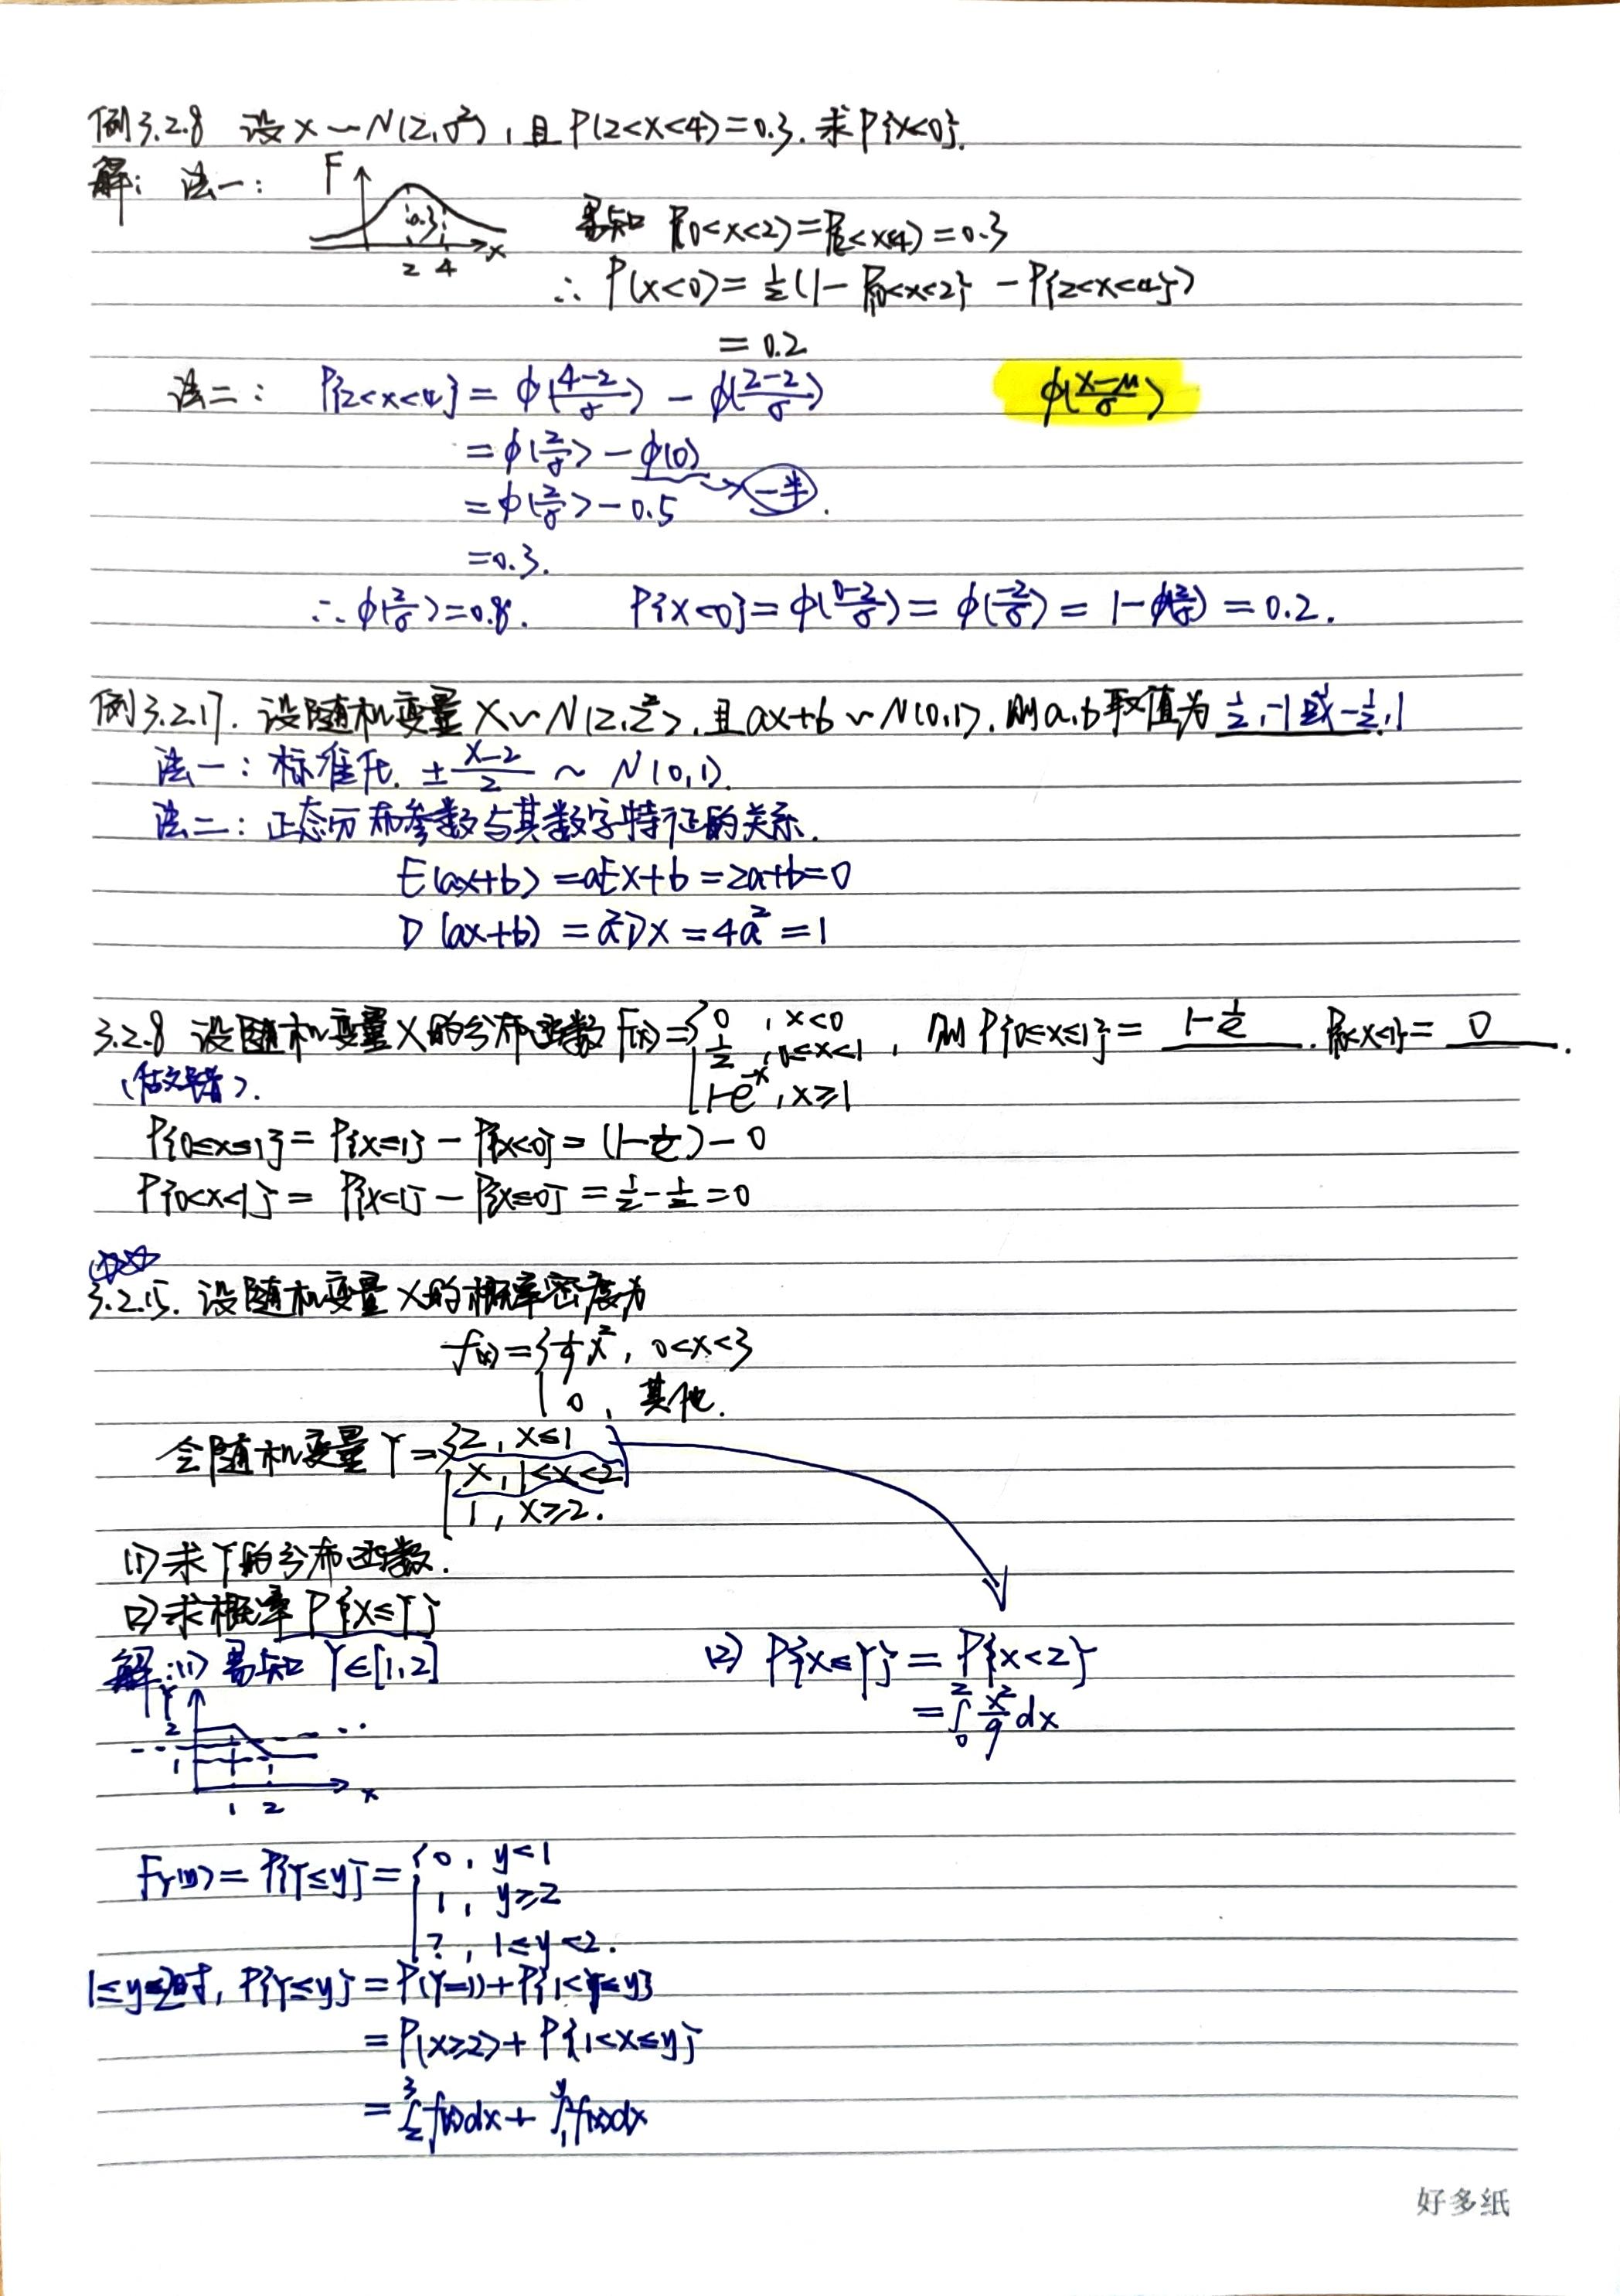 例3.2.8 设X~N(2,σ²),且P(2<X<4)=0.3.求P{X<0}.
解: 法一:
F
0.3
2 4 x
易知 P{0<X<2}=P{2<X<4}=0.3
∴ P(X<0)=½(1-P{0<X<2}-P{2<X<4})
=0.2
法二: P{2<X<4}=ϕ(4-2/σ)-ϕ(2-2/σ)
ϕ(X-μ/σ)
=ϕ(2/σ)-ϕ(0)
=ϕ(2/σ)-0.5 → 一半.
=0.3.
∴ϕ(2/σ)=0.8. P{X<0}=ϕ(0-2/σ)=ϕ(-2/σ)=1-ϕ(2/σ)=0.2.
例3.2.17.设随机变量X~N(2,2²),且aX+b~N(0,1),则a,b取值为 ½,-1或-½,1
法一:标准化. ±X-2/2 ~ N(0,1).
法二:正态分布参数与其数字特征的关系.
E(aX+b)=aEX+b=2a+b=0
D(aX+b)=a²DX=4a²=1
3.2.8 设随机变量X的分布函数F(x)={0,x<0
½,0≤x<1
1-e⁻ˣ,x≥1
,则P{0≤X≤1}=1-1/e.P{0<X<1}=0.
P{0≤X≤1}=P{X≤1}-P{X<0}=(1-1/e)-0
P{0<X<1}=P{X<1}-P{X≤0}=½-½=0
3.2.15.设随机变量X的概率密度为
f(x)={1/9x²,0<x<3
0,其他.
令随机变量Y={2,X≤1
X,1<X<2
1,X≥2.
(1)求Y的分布函数.
(2)求概率P{X≤Y}
解:(1)易知 Y∈[1,2]
(2) P{X≤Y}=P{X<2}
=∫₀²x²/9dx
Y
2
1
1 2 x
F_Y(y)=P{Y≤y}={0,y<1
1,y≥2
?,1≤y<2.
1≤y<2时,P{Y≤y}=P(Y=1)+P{1<Y≤y}
=P(X≥2)+P{1<X≤y}
=∫₂³f(x)dx+∫₁ʸf(x)dx
好多纸